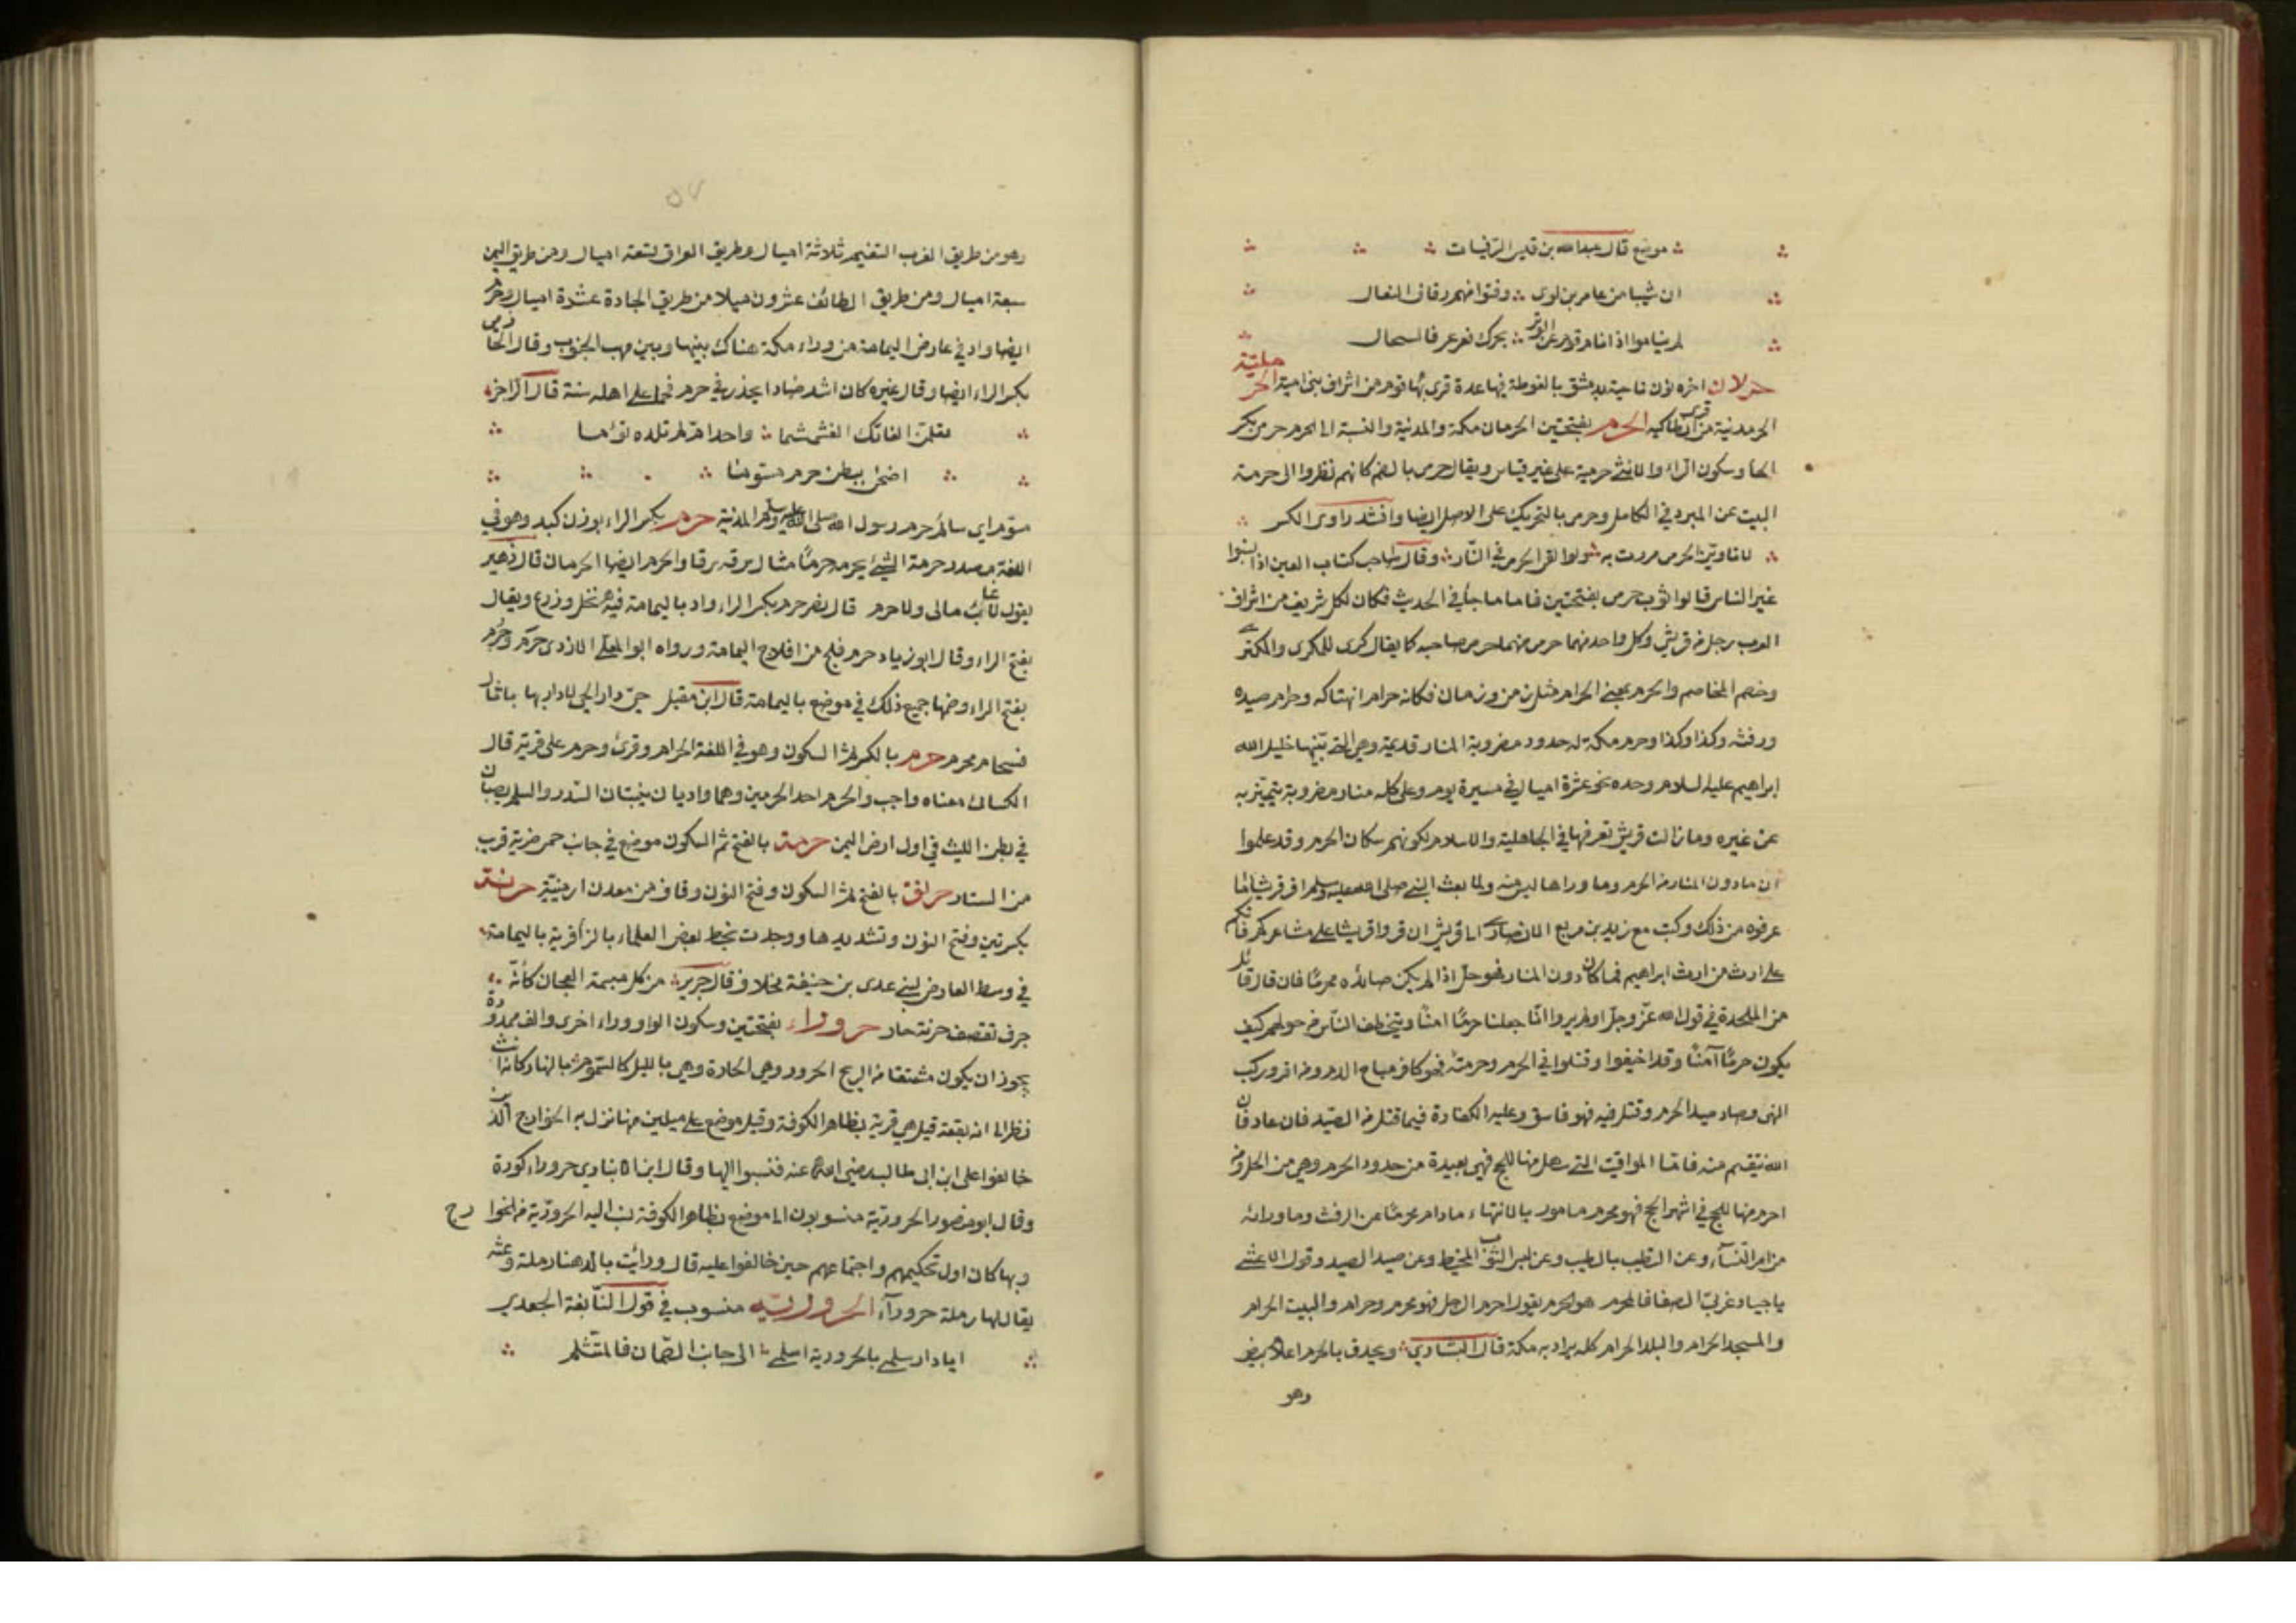 موضع قال عبدالله بن قيس الرقيات
ان شيبا من عامر بن لوى وفتوا منهم رقاق النعال
لم يناموا اذ انام قوم عن الوتر بحرك فعرعر فالسحال
حرلان اخره نون ناحية بدمشق بالغوطة فيها عدة قرى بها قوم من اشراف بنى امية الحر ملية
الحرمدنية من قرى انطاكيه الحرم بفتحتين الحرمان مكة والمدنية والنسبة الى الحرم حرمى بكسر
الحا وسكون الراء والانثى حرمية على غير قياس ويقال حرمى بالضم كانهم نظروا الى حرمة
البيت عن المبرد في الكامل وحرمى بالتحريك على الاصل ايضا وانشد راوى الكسر
لا تاوين لحرمى مررت به ولو القى الحرمى في النار وقال صاحب كتاب العين اذا نسبوا
غير الناس قالوا ثوب حرمى بفتحتين فاما ما جأ في الحديث فكان لكل شريف من اشراف
العرب رجل من قريش وكل واحد منهما حرمى منهما حرمى صاحبه كا يقال كرى للمكرى والمكترى
وخصم للمخاصم والحرم بمعنى الحرام مثل زمن وزمان فكانه حرام انتهاكه وحرام صيده
ورفثه وكذا وكذا وحرم مكة له حدود مضروبة المنار قديمة وهي التي بينها خليل الله
ابراهيم عليه السلام وحده نحو عشرة اميال في مسيرة يوم وعلى كله منار مضروبة يتميز به
عن غيره وما زالت قريش تعرفها في الجاهلية والاسلام لكونهم سكان الحرم وقد علموا
ان ما دون المنار من الحرم وما وراها ليس منه ولما بعث النبي صلى الله عليه وسلم اقر قريشا ما
عرفوه من ذلك وكتب مع زيد بن مربع الانصارى الى قريش ان قروا قريشا على مشاعركم فانكم
على ارث من ارث ابراهيم فما كان دون المنار فهو حل اذا لم يكن صائده محرما فان قال قائل
من الملحدة في قول الله عز وجل اولم يروا انا جعلنا حرما امنا ويتخطف الناس من حولهم كيف
يكون حرما آمنا وقد اخيفوا وقتلوا في الحرم وحرمته فهو كافر مباح الدم ومن اقر وركب
النهى وصاد صيد الحرم وقتل فيه فهو فاسق وعليه الكفارة فيما قتل من الصيد فان عاد فان
الله ينتقم منه فاما المواقيت التي يهل منها للحج فهى بعيدة من حدود الحرم وهي من الحل ومن
احرم منها للحج في اشهر الحج فهو محرم مامور بالانتهاء مادام محرما عن الرفث وما ورائه
من امر النساء وعن التطيب بالطيب وعن لبس الثوب المخيط وعن صيد الصيد وقول الاعشى
باجياد غربى الصفا فالمحرم هو الحرم يقول احرم الرجل فهو محرم وحرام والبيت الحرام
والمسجد الحرام والبلد الحرام كله يراد به مكة قال البشاري ويحدق بالحرم اعلام بيض
وهو
٥٧
وهو من طريق الغرب التنعيم ثلاثة اميال وطريق العراق لتسعة اميال ومن طريق اليمن
سبعة اميال ومن طريق الطائف عشرون ميلا من طريق الجادة عشرة اميال وحرم
ايضا واد في عارض اليمامة من وراء مكة هناك بينها وبين مهب الجنوب وقال الحازمى
بكسر الراء ايضا وقال غيره كان اشد ضادا يحذر في حرم فحما على اهله سنة قال الراجز
تقلن الفاتك الغشمشما واحد ام لم تلده توءما
اضحى ببطن حرم مستوما
مسوم اي سالم حرم رسول الله صلى الله عليه وسلم المدنية حرم بكسر الراء بوزن كبد وهو في
اللغة مصدر حرمة الشئ يحرمه حرما مثال سرقه سرقا والحرم ايضا الحرمان قال زهير
يقول لا غائب مالى ولا حرم قال نصر حرم بكسر الراء واد باليمامة فيه نخل وزرع ويقال
بفتح الراء وقال ابو زياد حرم فلج من افلاج اليمامة ورواه ابو المعلى الازدى حرم وحرم
بفتح الراء وضمها جميع ذلك في موضع باليمامة قال ابن مقبل حي دار الحي لا دار بها باثال
فسحام محرم حرم بالكسر ثم السكون وهو في اللغة الحرام وقرئ وحرم على قرية قال
الكسائ معناه واجب والحرم احد الحرمين وهما واديان ينبتان السدر والسلم يصبان
في بطن الليث في اول ارض اليمن حرمة بالفتح ثم السكون موضع في جانب حمى ضرية قرب
من الستار حرنق بالفتح ثم السكون وفتح النون وقاف من معدن ارمنية حرنة
بكسرتين وفتح النون وتشديدها ووجدت بخط بعض العلماء بالزا قرية باليمامة
في وسط العارض لبنى عدى بن حنيفة نخلا وقال جرير من كل مبسمة العجان كأنه
جرف تقصف من حرنة حار حروراء بفتحتين وسكون الواو وراء اخرى والف ممدودة
يجوز ان يكون مشتقا من الريح الحرور وهي الحارة وهي بالليل كالسموم بالنهار كانه انث
نظرا الى انه بقعة قيل هي قرية بظاهر الكوفة وقيل موضع على ميلين منها نزل به الخوارج الذين
خالفوا على ابن ابى طالب رضي الله عنه فنسبوا اليها وقال ابن الانبارى حروراء كورة
وقال ابو منصور الحرورية منسوبون الى موضع بظاهر الكوفة نسب اليه الحرورية من الخوارج
وبها كان اول تحكيمهم واجتماعهم حين خالفوا عليه قال ورايت بالدهنا رملة وعثة
يقال لها رملة حروراء الحرورية منسوب في قول النابغة الجعدي
ايا دار سلمى بالحرورية اسلمى الى جانب الصمان فالمتثلم